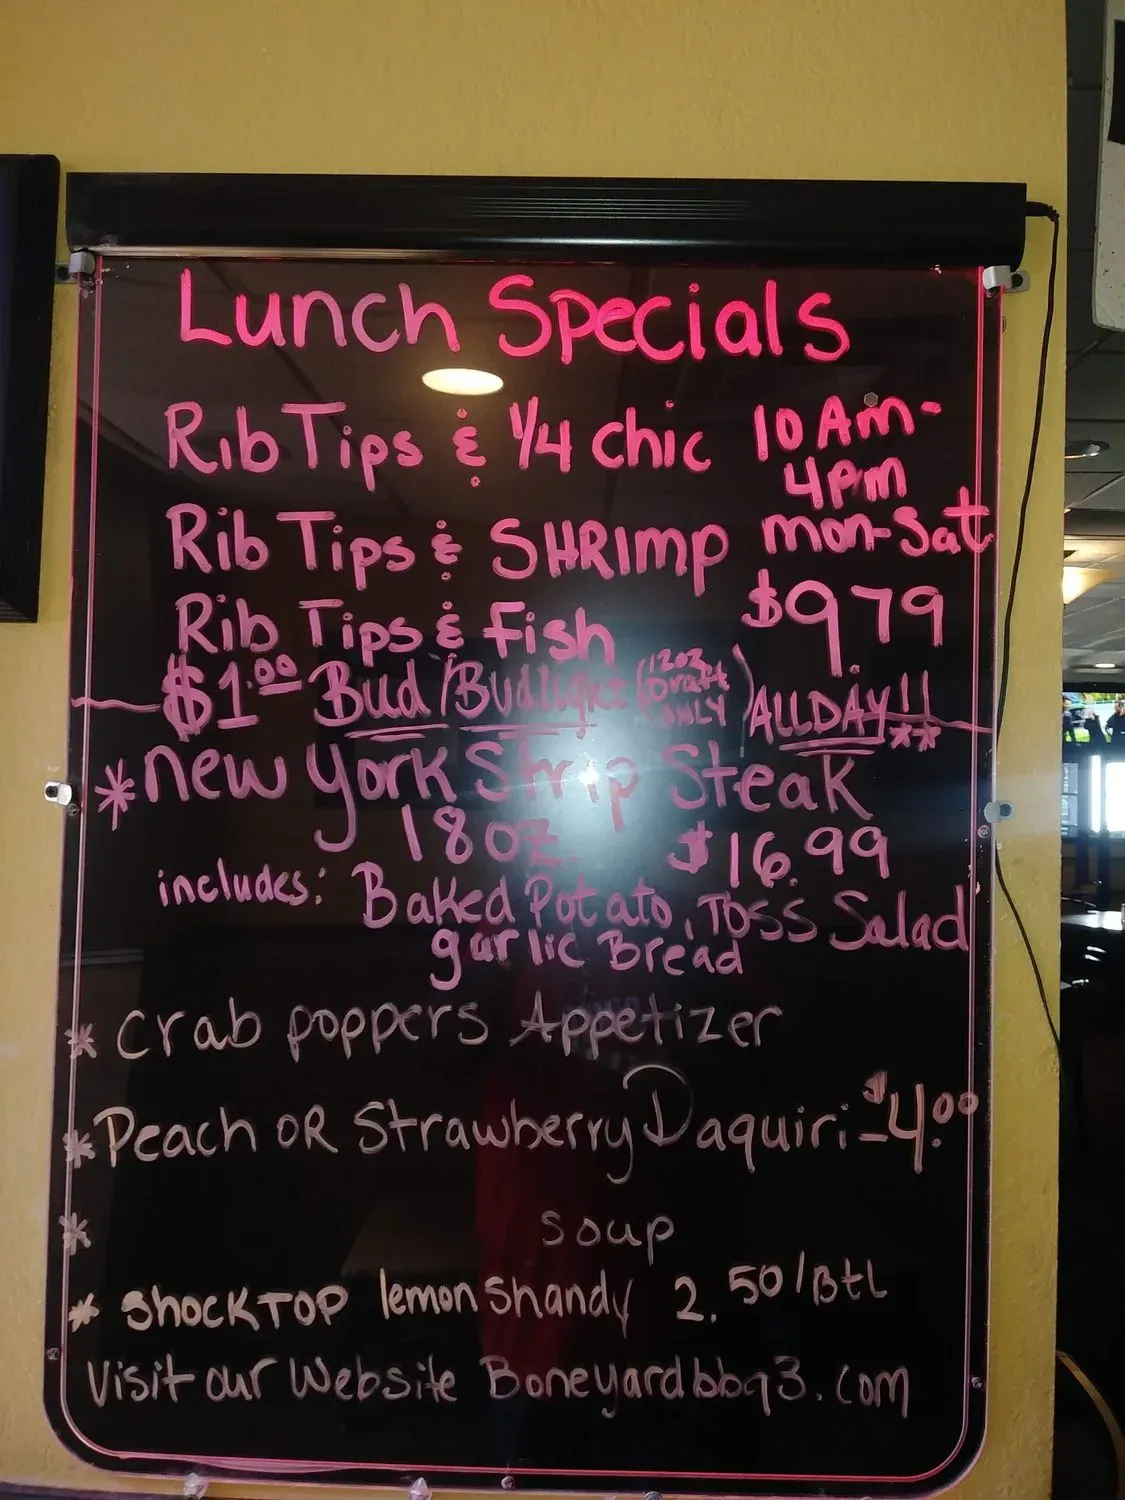 Lunch Specials
Rib Tips & 1/4 chic 10Am-
4pm
Rib Tips & SHRImp mon-Sat
Rib Tips & Fish $9.79
$1.00 Bud/Budlight (12oz Draft ONLY) ALLDAY!!
**
*New York Strip Steak
18oz. $16.99
includes: Baked Potato, Toss Salad
garlic Bread
* Crab poppers Appetizer
* Peach OR Strawberry Daquiri - $4.00
* soup
* SHOCKTOP lemon Shandy 2.50/Btl
Visit our Website Boneyardbbq3.com